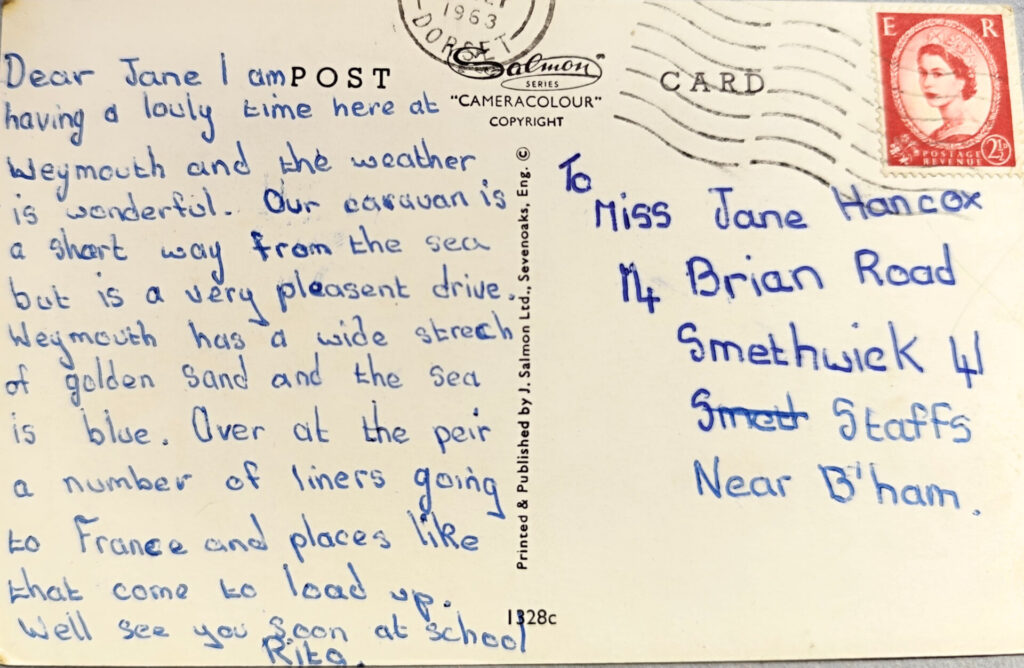 1963
DORSET
POST CARD
Salmon
SERIES
"CAMERACOLOUR"
COPYRIGHT
E R
POSTAGE
REVENUE
2½D
Dear Jane I am
having a lovly time here at
Weymouth and the weather
is wonderful. Our caravan is
a short way from the sea
but is a very pleasent drive.
Weymouth has a wide strech
of golden sand and the sea
is blue. Over at the peir
a number of liners going
to France and places like
that come to load up.
Well see you soon at school
Rita.
Printed & Published by J. Salmon Ltd., Sevenoaks, Eng. ©
1328c
To
Miss Jane Hancox
14 Brian Road
Smethwick 41
Smett Staffs
Near B'ham.